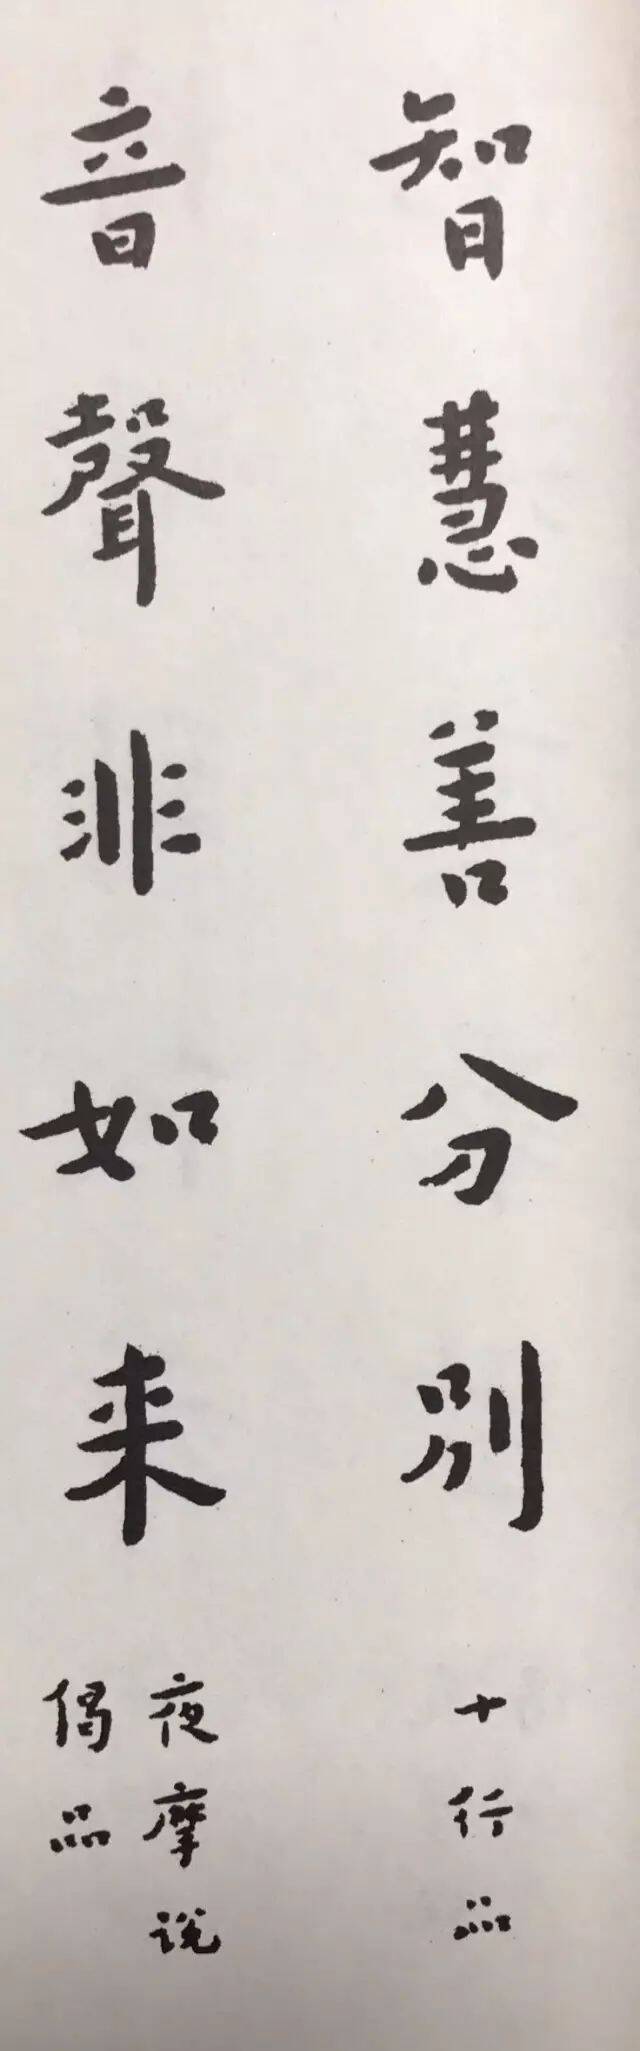 智慧善分別
十行品
音聲非如来
夜摩說
偈品